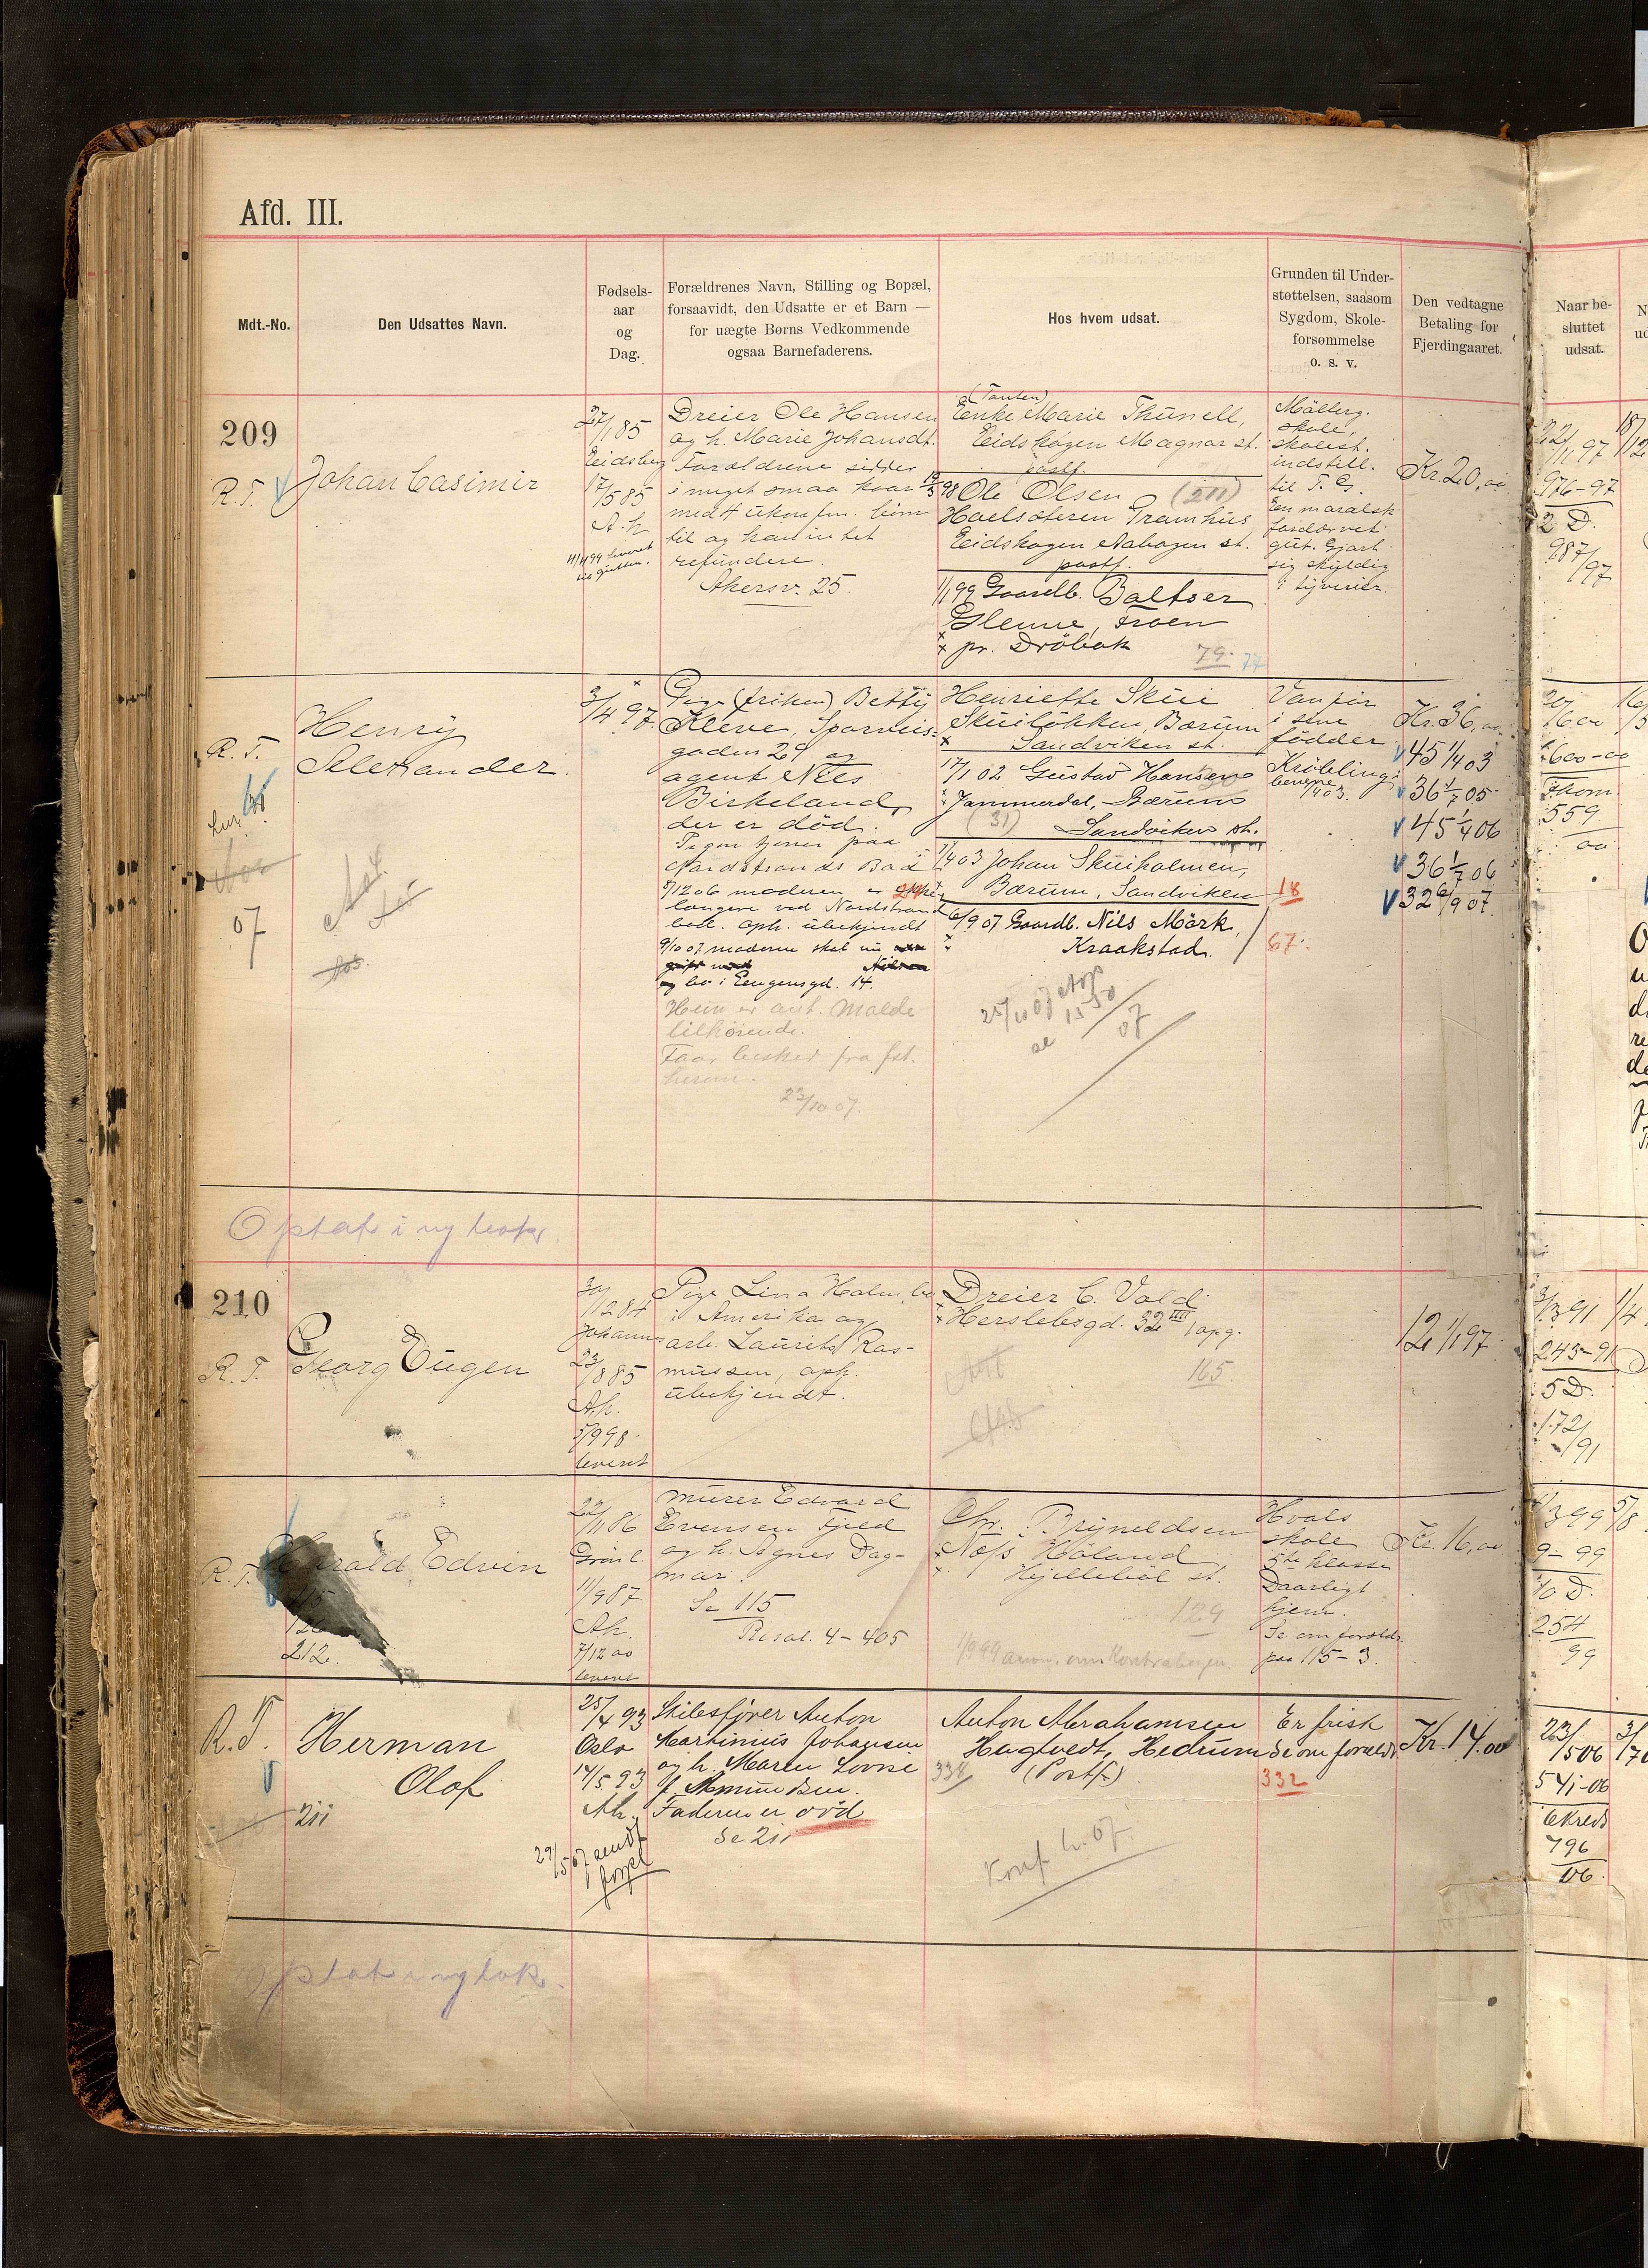 Afd. III.
Mdt.-No.
Den Udsattes Navn.
Fødsels-
aar
og
Dag.
Forældrenes Navn, Stilling og Bopæl,
forsaavidt, den Udsatte er et Barn —
for uægte Børns Vedkommende
ogsaa Barnefaderens.
Hos hvem udsat.
Grunden til Under-
støttelsen, saasom
Sygdom, Skole-
forsømmelse
o. s. v.
Den vedtagne
Betaling for
Fjerdingaaret.
Naar be-
sluttet
udsat.
209
R.T.
Johan Casimir
27/1 85
Eidsberg
17/5 85
A.h.
11/4 99 leveret
Dreier Ole Hansen
og h. Marie Johansdt.
Forældrene sidder
i meget smaa kaar
med 4 ukonfm. børn
til og kan intet
refundere.
Akersv. 25.
(Tanten)
Enke Marie Thunell,
Eidskogen Magnor st.
postf.
19/3 98 Ole Olsen (211)
Haelsæteren Gramhus
Eidskogen Aabogen st.
postf.
1/1 99 Gaardb. Baltser
Glenne, Froen
pr. Drøbak
79. 77
Møllerg.
skole,
skolest.
indstill.
til T. G.
En moralsk
fordærvet
gut. Gjort
sig skyldig
i tyverier.
Kr. 20,00
22/11 97
976-97
2 D.
987/97
R.T.
Henry
Alexander.
07
3/4 97.
Pige (frøken) Betty
Kleve, Sporveis-
gaden 29 og
agent Nils
Birkeland,
der er død.
Pigen tjener paa
Nordstrands Bad
5/12 06 moderen er ikke
længere ved Nordstrand
bad. oph. ubekjendt
9/10 07 moderen skal nu
og bo i Eugensgd. 14.
Hun er ant. Molde
tilhørende.
Faar besked fra fst.
herom.
23/10 07.
Henriette Skui
Skuiløkken, Bærum
Sandviken st.
17/1 02 Gustav Hansen
Jammerdal, Bærum
(31) Sandviken st.
1/4 03 Johan Skuiholmen,
Bærum, Sandviken
6/9 07 Gaardb. Nils Mørk,
Kraakstad.
18
67.
Vanfør
i sine
fødder
Krøbling i
benene
1/4 03.
Kr. 36,00
45 1/4 03
36 1/7 05
45 1/4 06
36 1/7 06
32 6/9 07.
600-00
Thom
559
00
Optat i ny bok.
210
R.T.
Georg Eugen
30/12 84
Johannes
23/8 85
A.h.
5/9 98
leveret
Pige Lina Holm, bor
i Amerika og
arb. Laurits Ras-
mussen, oph.
ubekjendt.
Dreier C. Vold
Herslebsgd. 32 IIII opg.
165.
12 1/1 97.
3/3 91
243-91
5 D.
172/91
R.T.
Harald Edvin
115
126
212.
22/11 86
Grønl.
11/9 87
Ah.
7/12 00
leveret
Murer Edvard
Evensen Fjeld
og h. Agnes Dag-
mar.
Se 115
Resol. 4-405
Chr. Bryneldsen
Næss Høland
Hjellebøl st.
129
Hvals
skole
5te klasse
Daarligt
hjem.
Se om foreld.
paa 115-3.
Kr. 16,00
9-99
10 D.
254
99
R.T.
Herman
Olaf
211
25/4 93
Oslo
14/5 93
Ah.
Stilesfører Anton
Martinius Johansen
og h. Maren Lovise
f. Amundsen.
Faderen er død
Se 211
Anton Abrahamsen
Hagtvedt, Hedrum
338 (Postf.)
Konf. h. 07.
Er frisk
Se om foreld.
332
Kr. 14.00
23/1 506
541-06
6kreds
796
06.
Optat i ny bok.